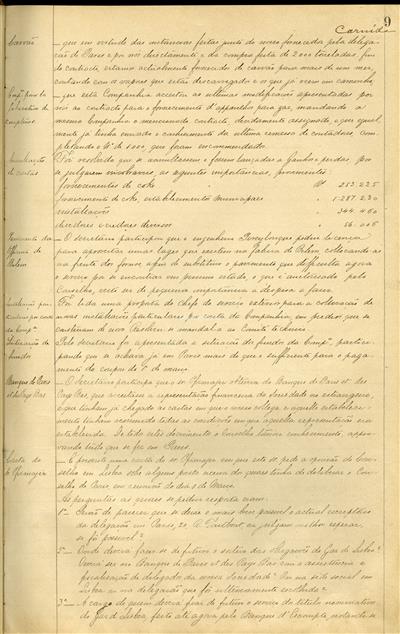 9
Carnide
Carvão
— que em virtude das instancias feitas junto do nosso fornecedor pela delega-
ção de Paris e por nós directamente e da compra feita de 2000 toneladas, fóra
do contracto, estamos actualmente fornecidos de carvão para mais de um mez,
contando com os vapores que estão descarregando e os que já vem em caminho,
— que esta Companhia acceitou as ultimas modificações apresentadas por
nós ao contracto para o fornecimento d'apparelhos para gaz, mandando a
mesma Companhia o mencionado contracto, devidamente assignado, e que egual-
mente já tinha enviado o conhecimento da ultima remessa de contadores, com-
pletando o nº de 1000 que foram encommendados.
Annullação
de contas
Foi resolvido que se annullassem e fossem lançadas a Ganhos e perdas por
se julgarem incobraveis, as seguintes importancias, provenientes:
fornecimentos de coke 252.225
fornecimento de coke, estabelecimentos Municipaes 1.287.230
installações 344.460
devedores e credores diversos 56.005
Pavimento da
Officina de
Belem
— O Secretario participou que o engenheiro Percylongue pediu licença
para aproveitar umas lages que existem na Fabrica de Belem collocando-as
na frente dos fornos afim de substituir o pavimento que difficulta agora
o serviço por se encontrar em pessimo estado, o que é auctorisado pelo
Conselho, visto ser de pequena importancia a despesa a fazer.
— Foi lida uma proposta do Chefe do serviço exterior para a collocação de
novas installações particulares por conta da Companhia, em predios que se
construam de novo. Resolveu-se mandal-a ao Comité technico.
Situação de
fundos
Pelo Secretario foi apresentada a situação de fundos da Compª, partici-
pando que se achava já em Paris mais do que o sufficiente para o paga-
mento do coupon do 1º de maio.
Banque de Paris
et des Pays Bas
— O Secretario participa que o sr. Pfinager obteve do Banque de Paris et des
Pays Bas, que acceitasse a representação financeira da Sociedade no estrangeiro,
e que tinham já chegado as cartas em que o nosso collega e aquelle estabeleci-
mento tinham concordado todas as condições em que aquella representação era
estabelecida. De todos estes documentos o Conselho tomou conhecimento, appro-
vando tudo que se fez em Paris.
Carta do
sr. Pfinager
— É presente uma carta do sr. Pfinager em que este sr. pede a opinião do Con-
selho em Lisboa sobre alguns pontos acerca dos quaes tinha de deliberar o Con-
selho de Paris em reunião do dia 9 de Março.
As perguntas ás quaes se pedem resposta eram:
1ª — Serão de parecer que se deva o mais breve possivel o actual escriptorio
da delegação em Paris, 20 R. Taitbout, ou julgam melhor esperar,
se fôr possivel?
2ª — Onde deverá fazer-se de futuro o sorteio das Obrigações do Gaz de Lisboa?
Deverá ser no Banque de Paris et des Pays Bas com a assistencia e
fiscalisação do delegado da nossa Sociedade? Ou na séde social em
Lisboa ou na delegação que fôr ultimamente escolhida?
3ª — A cargo de quem deverá ficar de futuro o serviço dos titulos nominativos
do Gaz de Lisboa, feito até agora pelo Banque d'Escompte, existindo-se